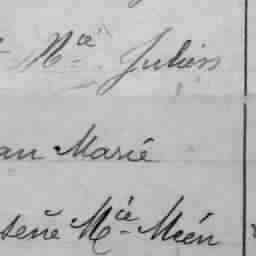 Mᶜᵉ Julien
an Marie
sène Mᶜⁱᵉ Méén